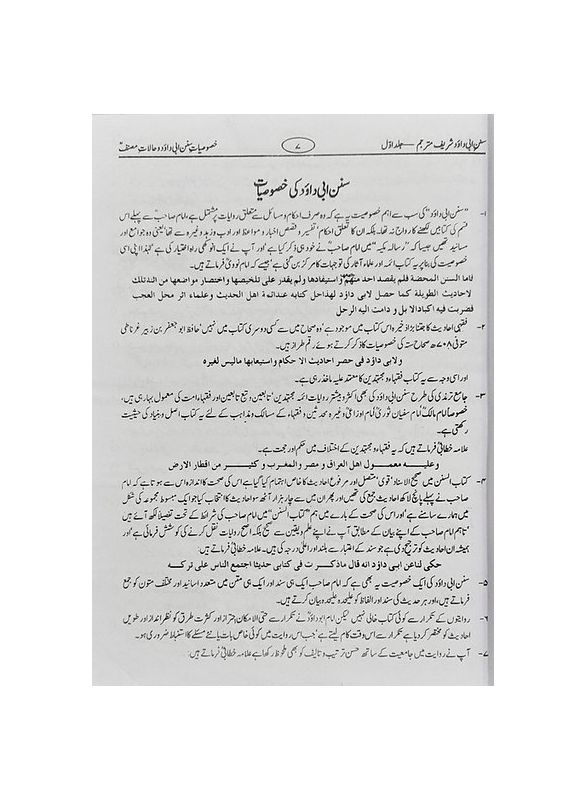 سنن ابی داؤد شریف مترجم — جلد اوّل ۷ خصوصیات سنن ابی داؤد و حالات مصنفؒ
سنن ابی داؤد کی خصوصیات
۱- "سنن ابی داؤد" کی سب سے اہم خصوصیت یہ ہے کہ وہ صرف احکام و مسائل سے متعلق روایات پر مشتمل ہے، امام صاحبؒ سے پہلے اس
قسم کی کتابیں لکھنے کا رواج نہ تھا۔ بلکہ ان کا تعلق احکام' تفسیر و قصص' اخبار و مواعظ اور ادب و زہد وغیرہ سے تھا' یعنی وہ جوامع اور
مسانید تھیں جیسا کہ "رسالہ مکیہ" میں امام صاحبؒ نے خود ہی ذکر کیا ہے' اور آپ نے ایک انوکھی راہ اختیار کی ہے' لہٰذا اپنی اسی
خصوصیت کی بنا پر یہ کتاب ائمہ اور علماء آثار کی توجہات کا مرکز بن گئی ہے' جیسے کہ امام نوویؒ فرماتے ہیں۔
فاما السنن المحضة فلم يقصد احد منهم واستيفادها ولم يقدر على تلخيصها واختصار مواضعها من اثناء تلك
لاحاديث الطويلة كما حصل لابى داؤد لهذا حل كتابه عند ائمة اهل الحديث وعلماء اثر محل العجب
فضربت فيه اكباد الابل و دامت اليه الرحل
۲- فقہی احادیث کا جتنا بڑا ذخیرہ اس کتاب میں موجود ہے' وہ صحاح میں سے کسی دوسری کتاب میں نہیں' حافظ ابو جعفر بن زبیر غرناطی
متوفی ۷۰۸ھ صحاح ستہ کی خصوصیات کا ذکر کرتے ہوئے رقم طراز ہیں۔
ولابى داؤد فى حصر احاديث الا حكام واستيعابها ماليس لغيره
اور اسی وجہ سے یہ کتاب فقہاء و مجتہدین کا معتمد علیہ ماخذ رہی ہے۔
۳- جامع ترمذی کی طرح سنن ابی داؤد کی بھی اکثر و بیشتر روایات ائمہ مجتہدین' تابعین و تبع تابعین اور فقہاء امت کی معمول بہا رہی ہیں،
خصوصاً امام مالکؒ' امام سفیان ثوریؒ' امام اوزاعیؒ وغیرہ محدثین و فقہاء کے مسالک و مذاہب کے لئے یہ کتاب اصل و بنیاد کی حیثیت
رکھتی ہے۔
علامہ خطابیؒ فرماتے ہیں کہ یہ فقہاء و مجتہدین کے اختلاف میں حکم اور حجت ہے۔
وعليـه معمـول اهل العراق و مصر والمغرب و كثيـر من اقطار الارض
۴- کتاب السنن میں صحیح الاسناد' قوی' متصل اور مرفوع احادیث کا خاص اہتمام کیا گیا ہے اس کی صحت کا اندازہ اس سے ہوتا ہے کہ امام
صاحب نے پہلے پانچ لاکھ احادیث جمع کی تھیں اور پھر ان میں سے چار ہزار آٹھ سو احادیث کا انتخاب کیا جو ایک مبسوط مجموعہ کی شکل
میں ہمارے سامنے ہے' اور اس کی صحت کے بارے میں ہم "کتاب السنن" میں امام صاحب کی شرائط کے تحت تفصیلاً لکھ آئے ہیں
'تاہم امام صاحب کے اپنے بیان کے مطابق آپ نے اپنے علم و یقین سے صحیح بلکہ اصح روایات نقل کرنے کی کوشش فرمائی ہے' اور
ہمیشہ ان احادیث کو ترجیح دی ہے جو سند کے اعتبار سے بلند اور اعلیٰ درجہ کی ہیں۔ علامہ خطابیؒ فرماتے ہیں:
حكى لنا عن ابى داؤد انه قال ماذكرت فى كتابى حديثا اجتمع الناس على تركه
۵- سنن ابی داؤد کی ایک خصوصیت یہ بھی ہے کہ امام صاحب ایک ہی سند اور ایک ہی متن میں متعدد اسانید اور مختلف متون کو جمع
فرماتے ہیں، اور ہر حدیث کی سند اور الفاظ کو علیحدہ علیحدہ بیان کرتے ہیں۔
۶- روایتوں کے تکرار سے کوئی کتاب خالی نہیں' لیکن امام ابو داؤدؒ نے تکرار سے حتی الامکان احتراز اور کثرت طرق کو نظر انداز اور طویل
احادیث کو مختصر کر دیا ہے' تکرار سے اس وقت کام لیتے ہے' جب اس روایت میں کوئی خاص بات یا نئے مسئلے کا استنباط ضروری ہو۔
۷- آپ نے روایت میں جامعیت کے ساتھ حسن ترتیب و تالیف کو بھی ملحوظ رکھا ہے' علامہ خطابیؒ فرماتے ہیں: